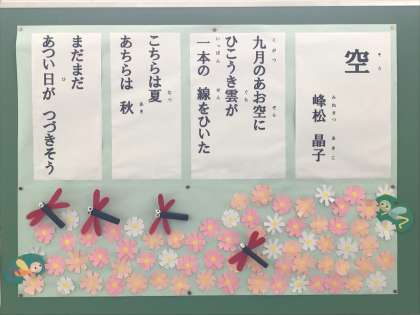 空
峰松 晶子
九月のあお空に
ひこうき雲が
一本の 線をひいた
こちらは夏
あちらは 秋
まだまだ
あつい日が つづきそう